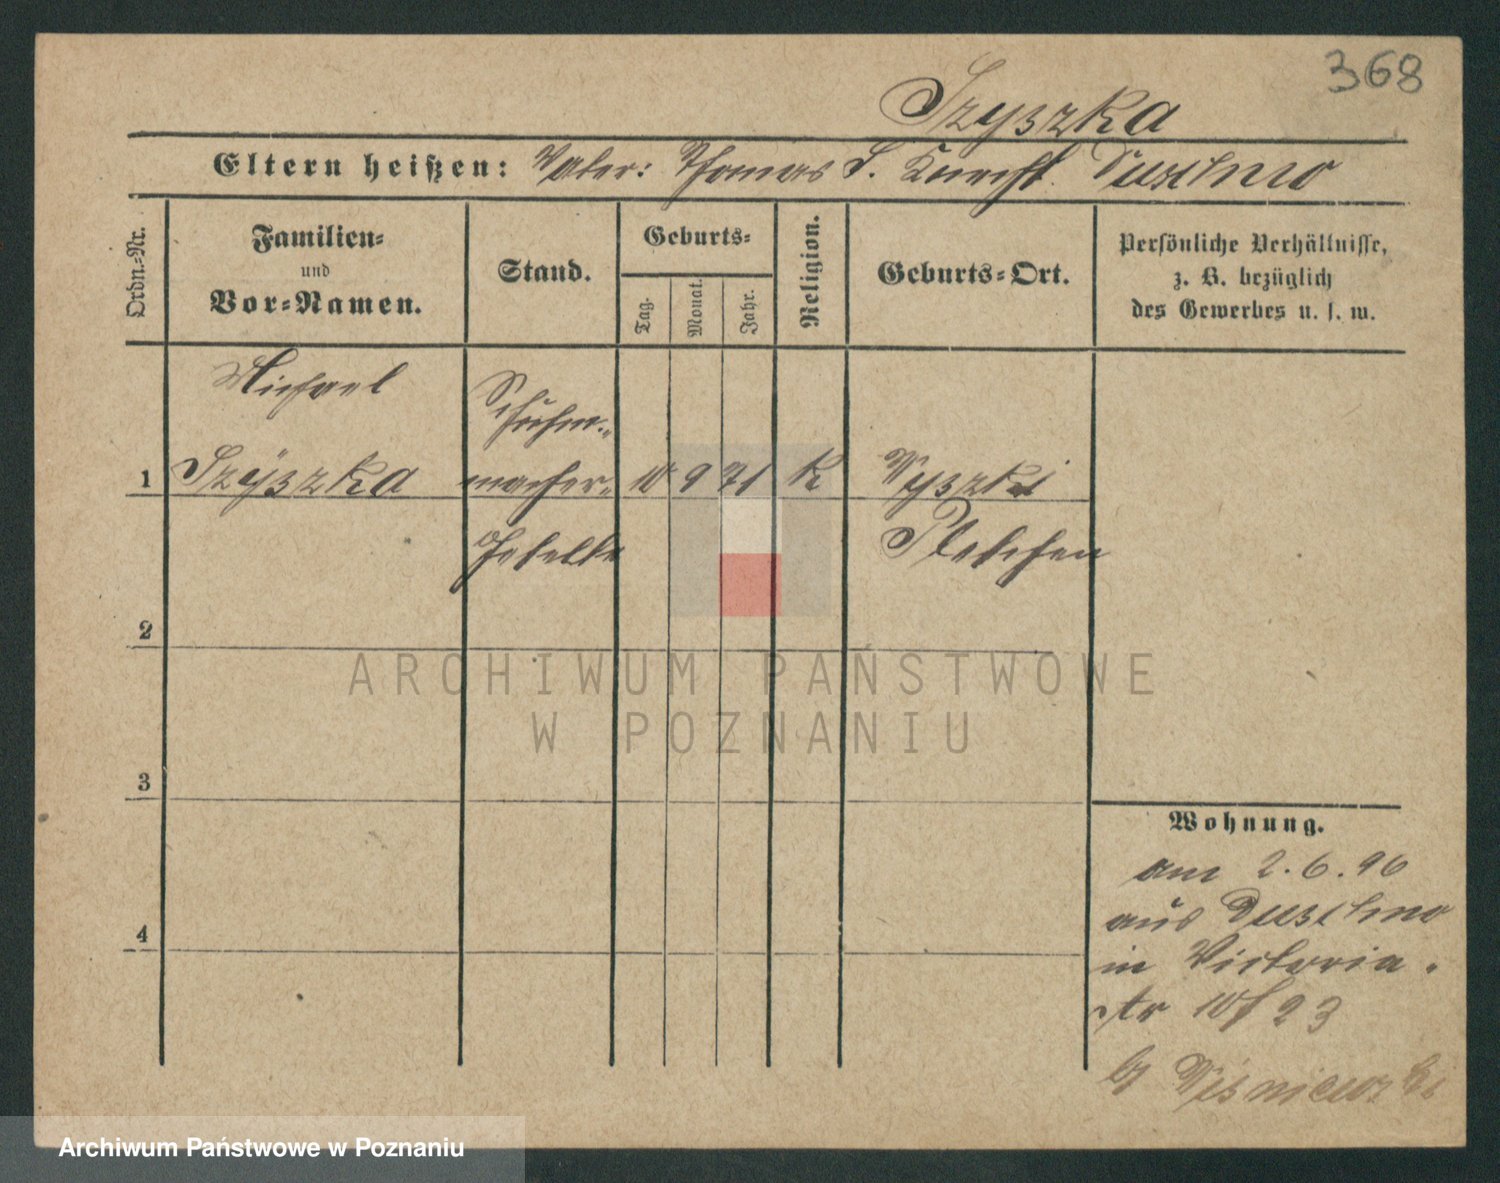 368
Szyszka
Eltern heißen: Vater: Thomas S. Knecht. Duschno
Ordn.-Nr.
Familien-
und
Vor-Namen.
Stand.
Geburts-
Tag.
Monat.
Jahr.
Religion.
Geburts-Ort.
Persönliche Verhältnisse,
z. B. bezüglich
des Gewerbes u. s. w.
Michael
Schuhm-
1 Szyszka macher- 10 9 71 K Wyszki
Geselle Pleschen
2
3
4
Wohnung.
am 2.6.96
aus Duschno
in Victoria
str 23
b/
ARCHIWUM PAŃSTWOWE
W POZNANIU
Archiwum Państwowe w Poznaniu